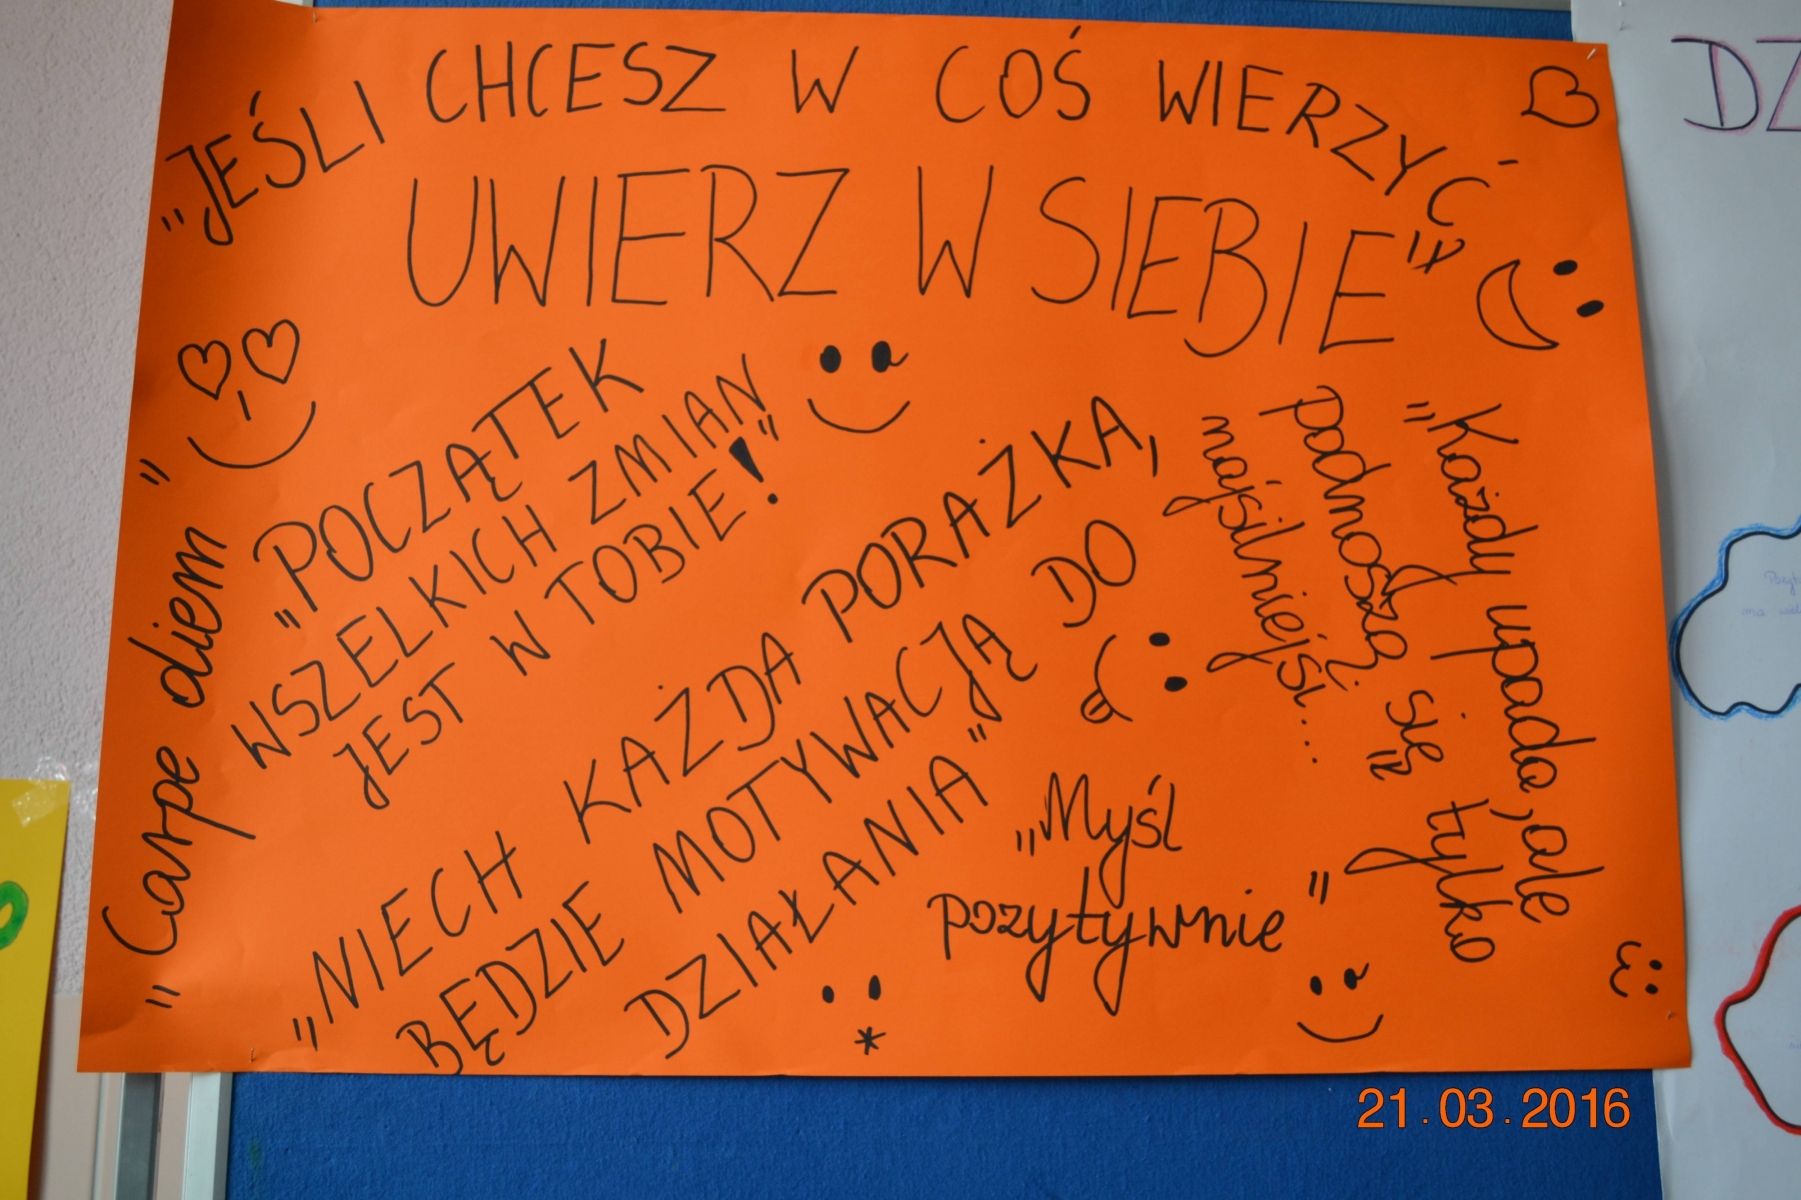 „JEŚLI CHCESZ W COŚ WIERZYĆ
UWIERZ W SIEBIE"
„POCZĄTEK
WSZELKICH ZMIAN
JEST W TOBIE!"
„Carpe diem"
„NIECH KAŻDA PORAŻKA,
BĘDZIE MOTYWACJĄ DO
DZIAŁANIA"
„Każdy upada, ale
podnoszą się tylko
najsilniejsi..."
„Myśl
pozytywnie"
DZ
21.03.2016